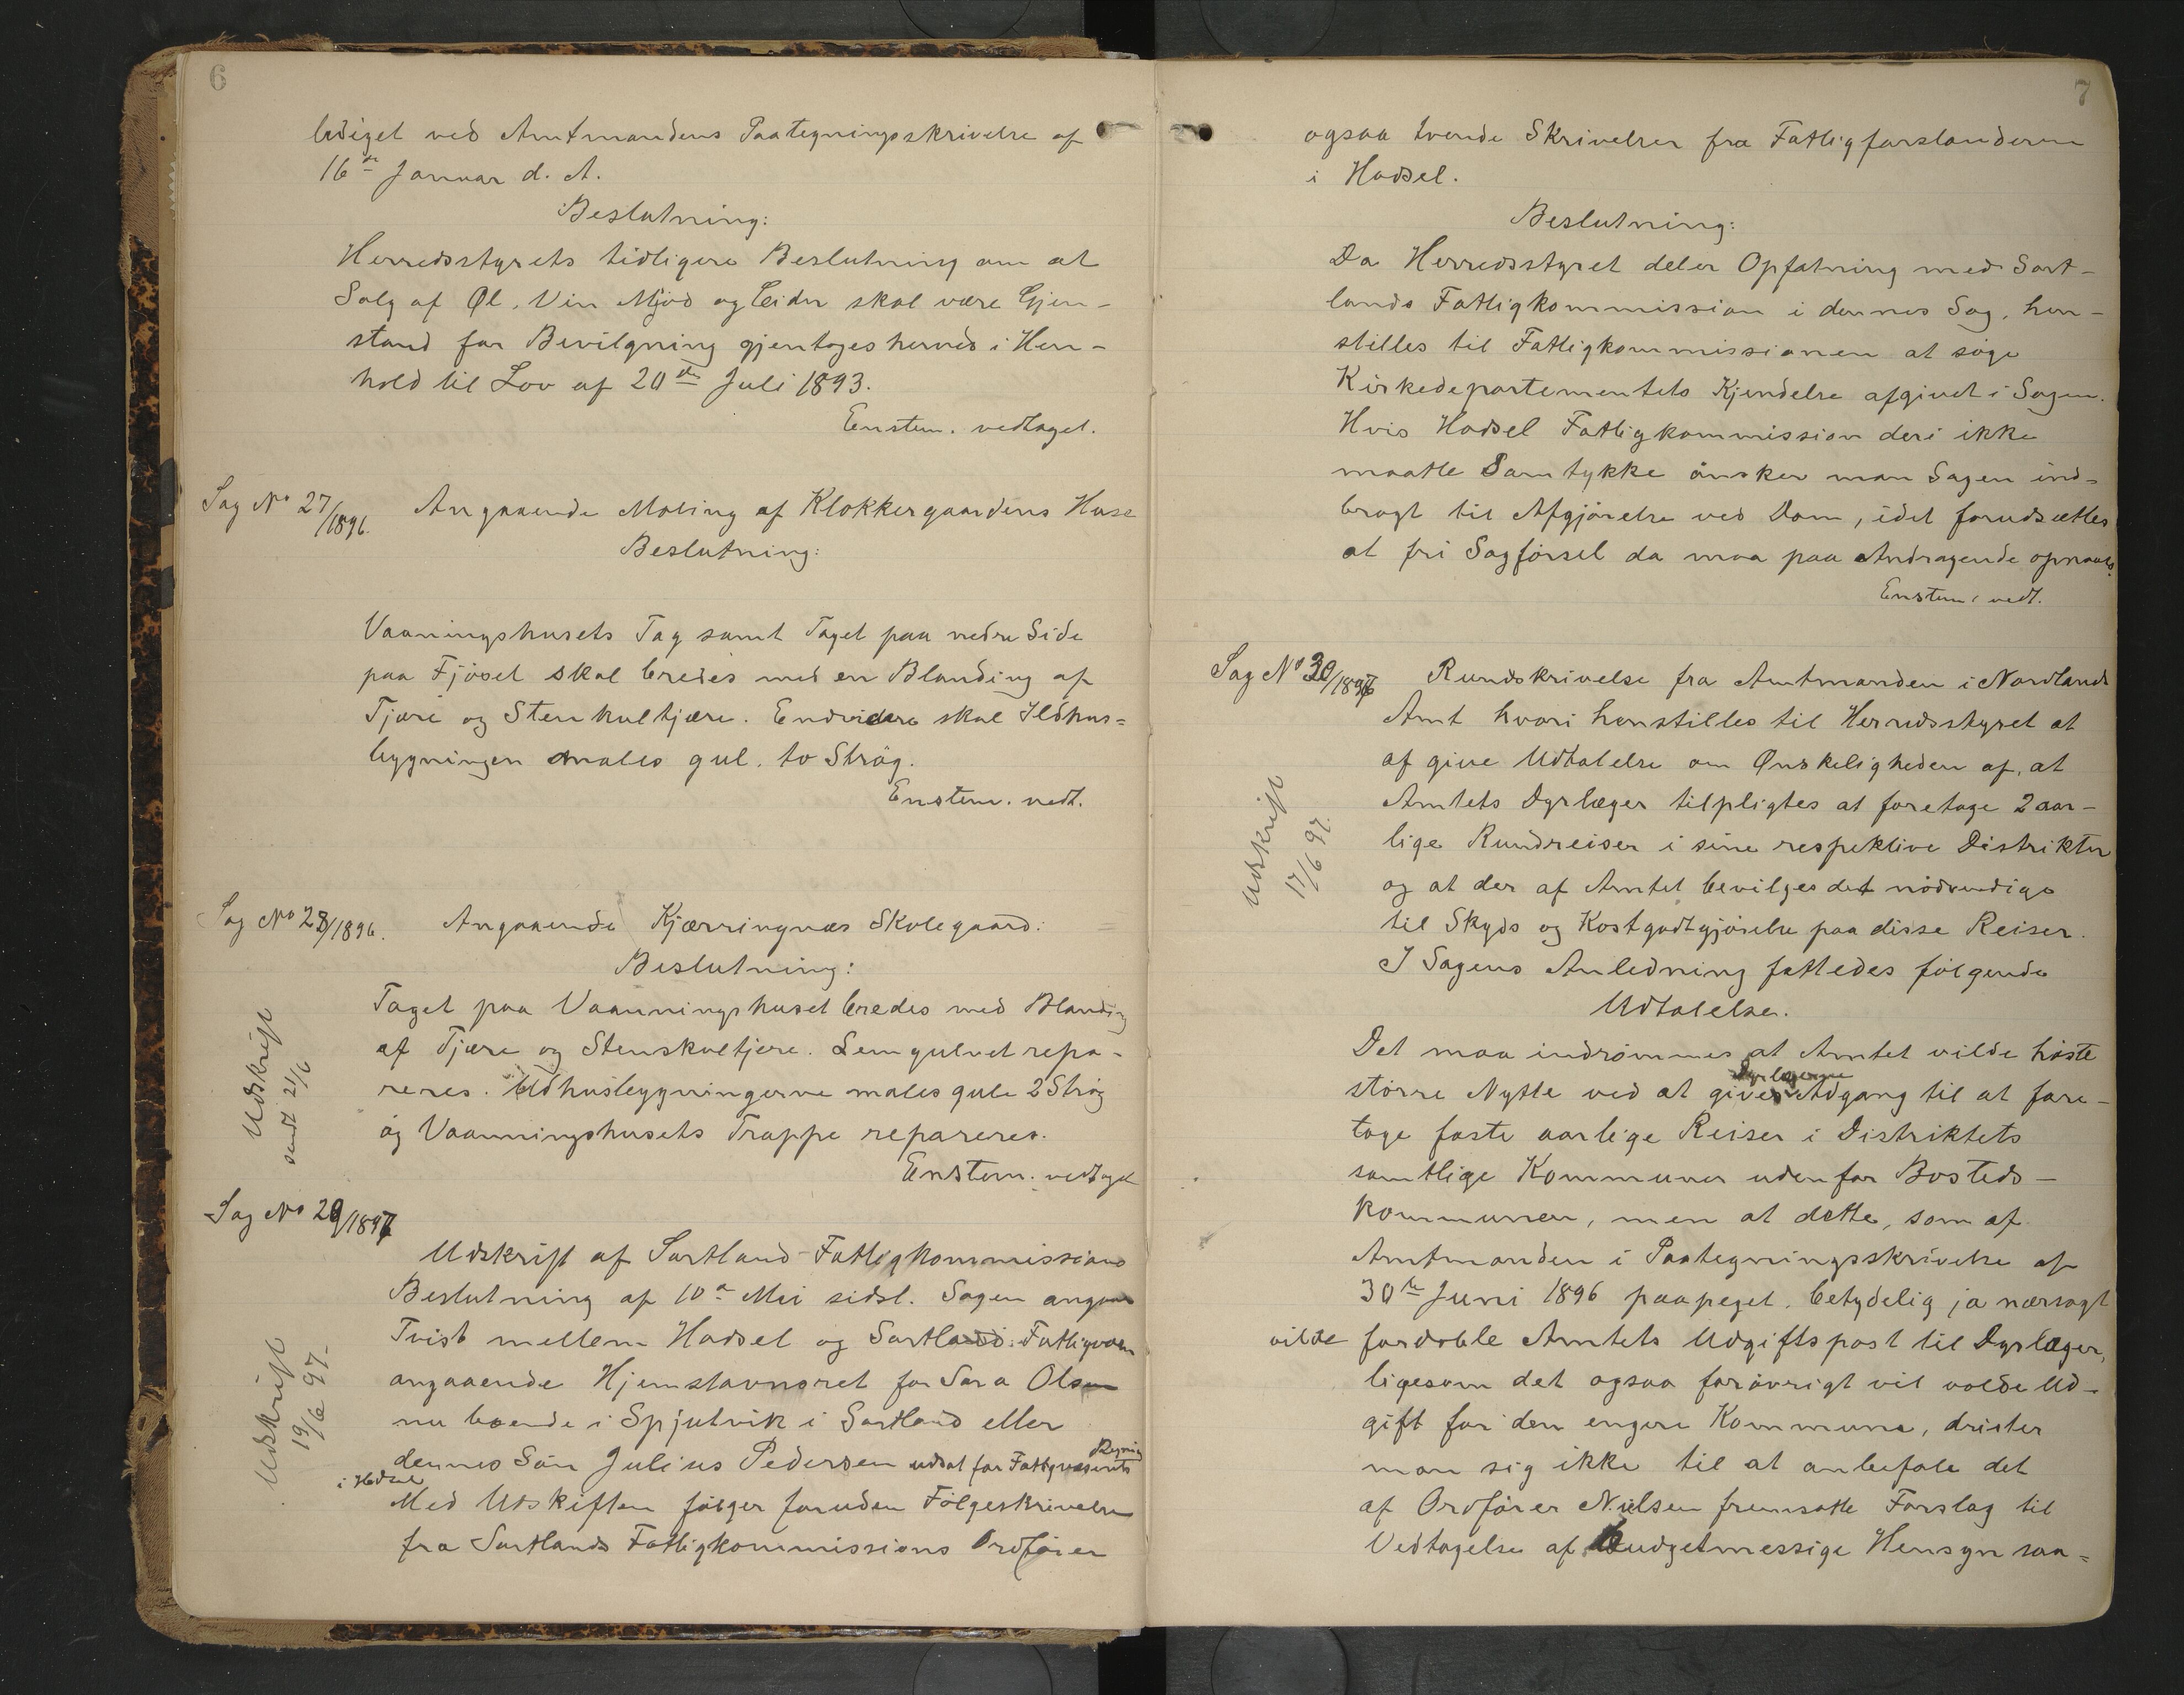 6
lediget ved Amtmandens Paategningsskrivelse af
16de Januar d. A.
Beslutning:
Herredsstyrets tidligere Beslutning om at
Salg af Øl, Vin Mjød og Cider skal være Gjen-
stand for Bevilgning gjentages herved i Hen-
hold til Lov af 20de Juli 1893.
Enstem. vedtaget.
Sag No 27/1896. Angaaende Maling af Klokkergaardens Huse
Beslutning:
Vaaningshusets Tag samt Taget paa nedre Side
paa Fjøset skal bredes med en Blanding af
Tjære og Stenkultjære. Endvidere skal Ildhus=
bygningen males gul. to Strøg.
Enstem. vedt.
Sag No 28/1896. Angaaende Kjærringnæs Skolegaard:
Beslutning:
Taget paa Vaanningshuset bredes med Blanding
af Tjære og Stenskultjere. Lemgulvet repa-
reres. Udhusbygningerne males gule 2 Strøg
og Vaanningshusets Trappe repareres.
Enstem. vedtget
Udskrift
sendt 21/6
Sag No 29/1897
Udskrift af Sortland Fattigkommissions
Beslutning af 10de Mai sidst. Sagen angaar
Tvist mellem Hadsel og Sortland Fattigvæsen
angaaende Hjemstavnsret for Sara Olsen
nu boende i Spjutvik i Sortland eller
dennes Søn Julius Pedersen udsat for Fattigvæsenets Regning
i Hadsel
Med Utskiften følger foruden Følgeskrivelse
fra Sortlands Fattigkommissions Ordfører
Udskrift
19/6 97-
7
ogsaa tvende Skrivelser fra Fattigforstanderen
i Hadsel.
Beslutning:
Da Herredsstyret deler Opfatning med Sort-
lands Fattigkommission i dennes Sag, hen-
stilles til Fattigkommissionen at søge
Kirkedepartementets Kjendelse afgivet i Sagen.
Hvis Hadsel Fattigkommission deri ikke
maatte Samtykke ønsker man Sagen ind=
bragt til Afgjørelse ved Dom, idet forudsættes
at fri Sagførsel da maa paa Andragende opnaaes.
Enstem. vedt.
Sag No 30/1897 Rundskrivelse fra Amtmanden i Nordlands
Amt hvori henstilles til Herredsstyret at
afgive Udtalelse om Ønskeligheden af, at
Amtets Dyrlæger tilpligtes at foretage 2 aar-
lige Rundreiser i sine respektive Distrikter
og at der af Amtet bevilges det nødvendige
til Skyds og Kostgodtgjørelse paa disse Reiser.
I Sagens Anledning fattedes følgende
Udtalelse.
Udskrift
17/6 97.
Det maa indrømmes at Amtet vilde høste
større Nytte ved at gives Dyrlægerne Adgang til at fore-
tage faste aarlige Reiser i Distriktets
samtlige Kommuner udenfor Bosteds-
kommunen, men at dette, som af
Amtmanden i Paategningsskrivelse af
30te Juni 1896 paapeget, betydelig ja nærsagt
vilde fordoble Amtets Udgiftspost til Dyrlæger,
ligesom det ogsaa forøvrigt vil volde Ud-
gift for den engere Kommune, drister
man sig ikke til at anbefale det
af Ordfører Nielsen fremsatte Forslag til
Vedtagelse af Budgetmessige Hensyn saa=